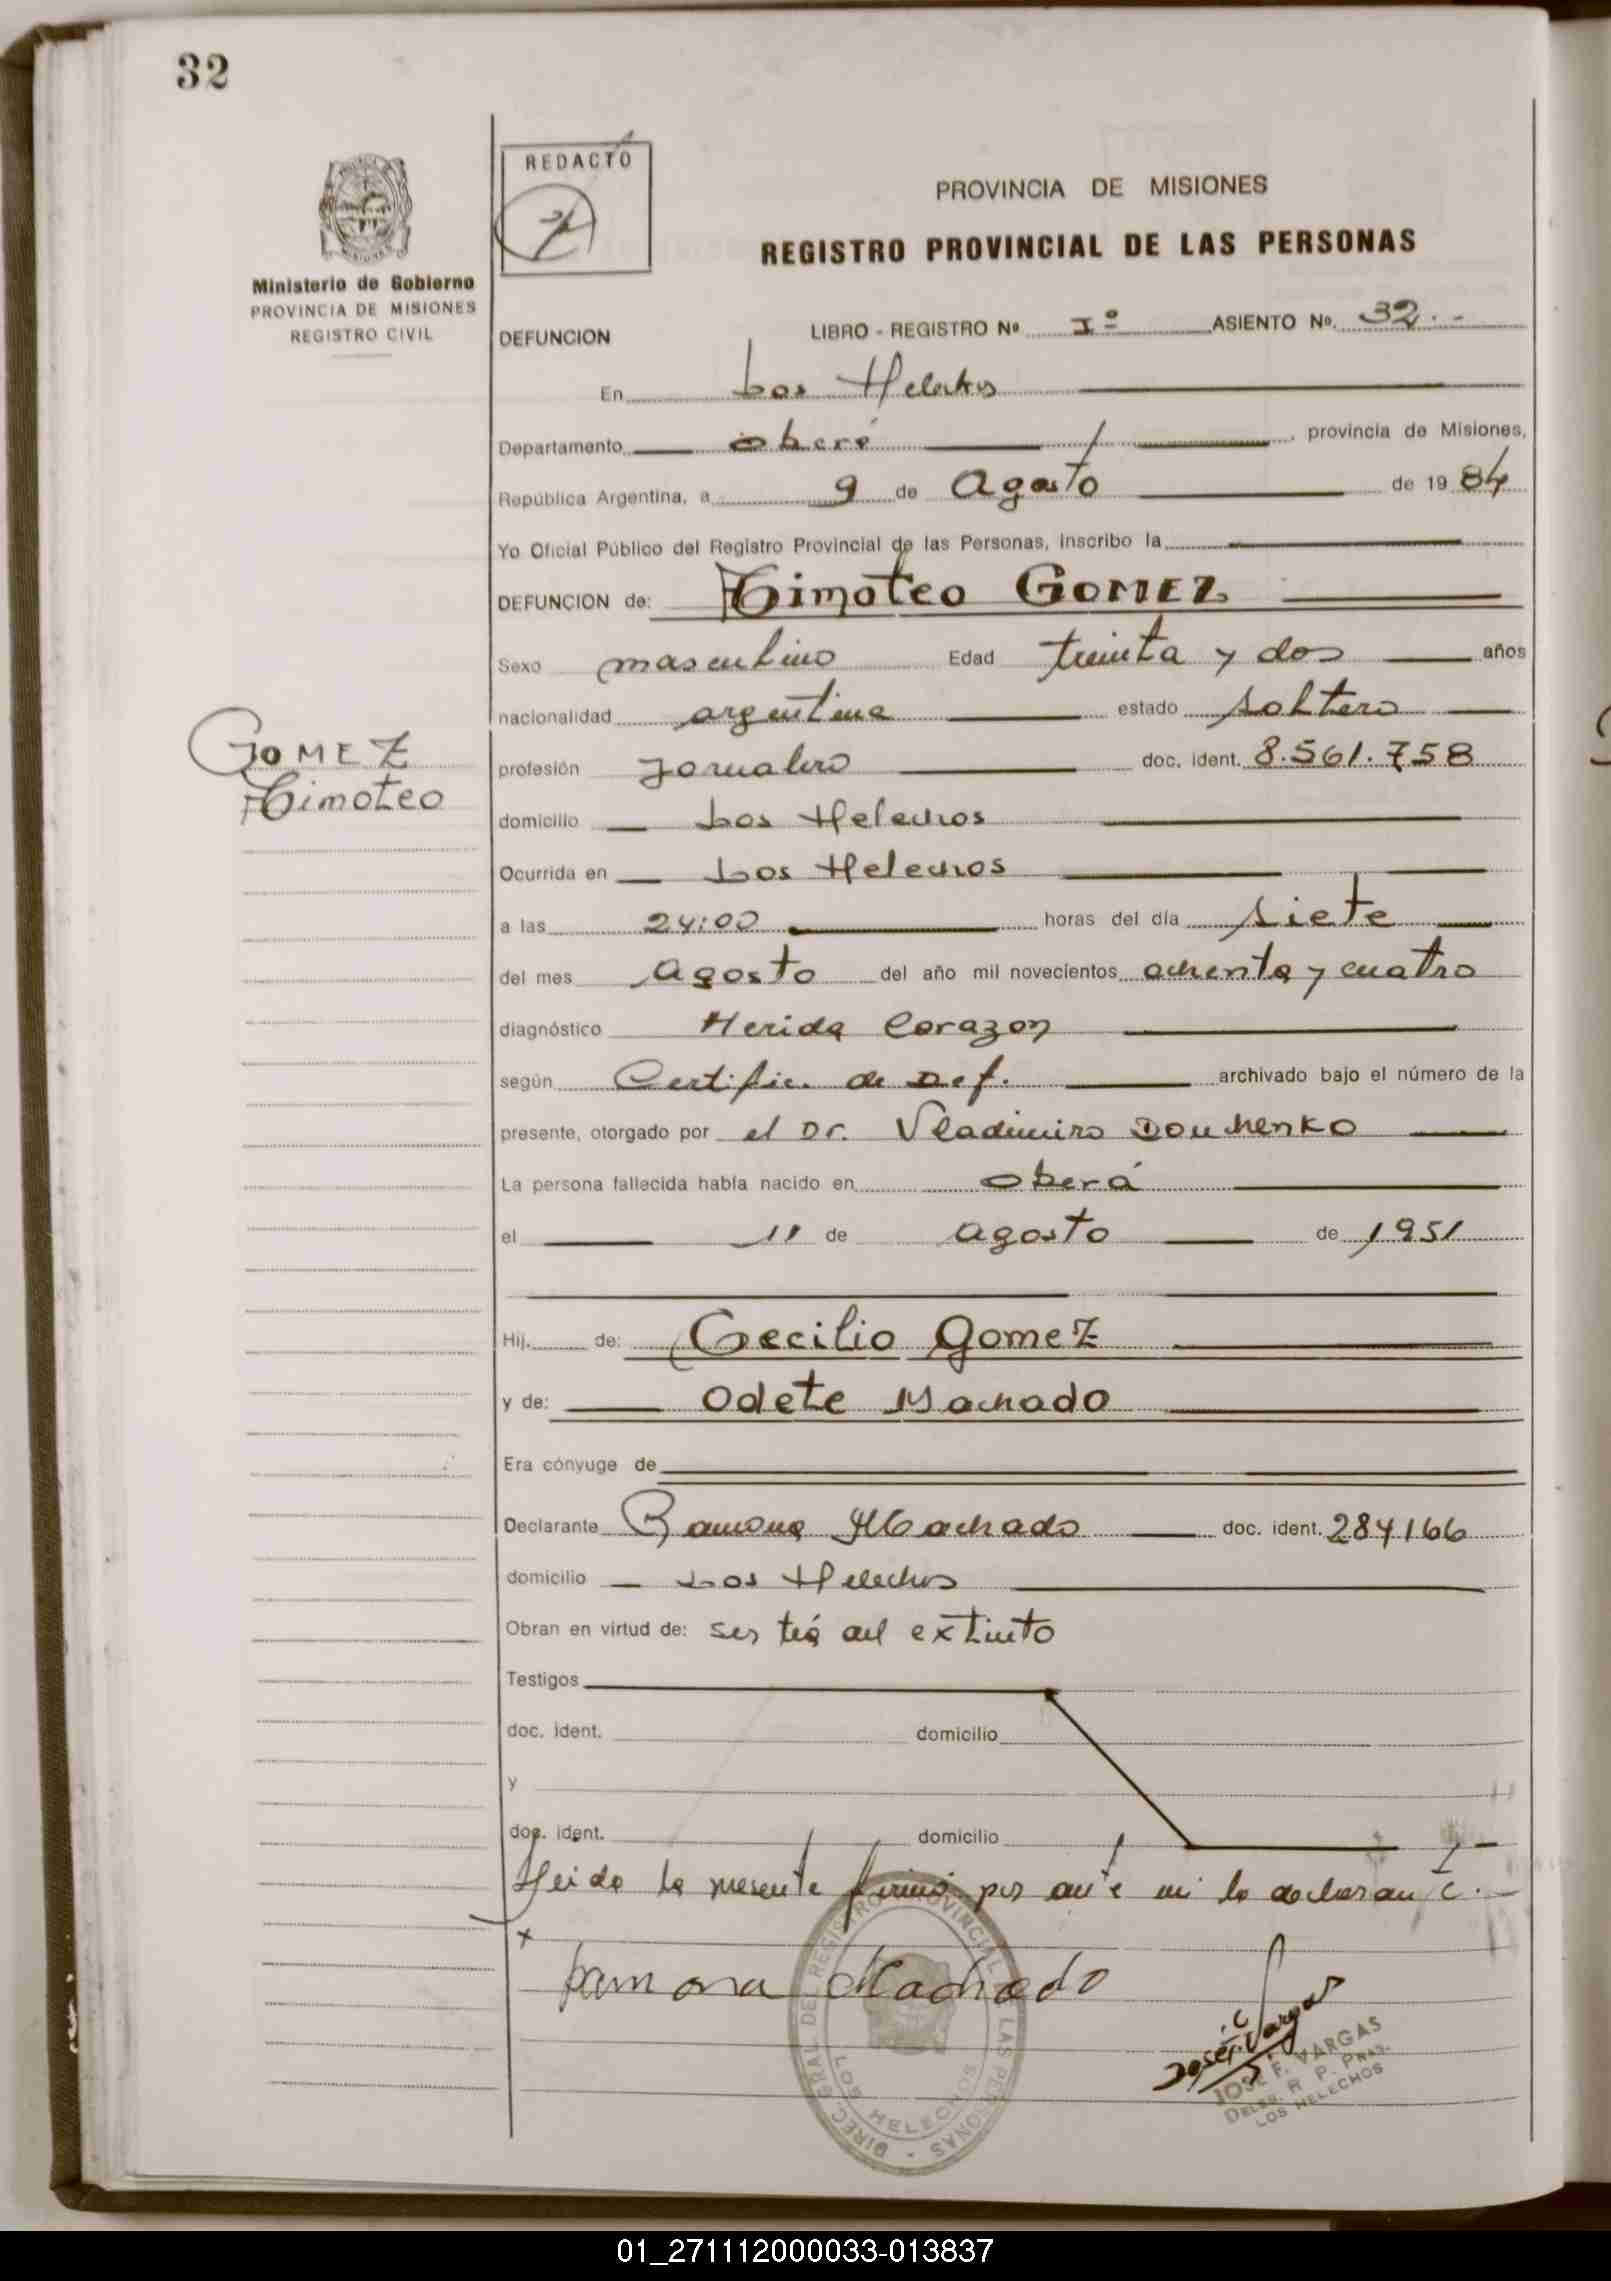 32
REDACTÓ
PROVINCIA DE MISIONES
REGISTRO PROVINCIAL DE LAS PERSONAS
Ministerio de Gobierno
PROVINCIA DE MISIONES
REGISTRO CIVIL
DEFUNCION LIBRO - REGISTRO Nº Iº ASIENTO Nº 32.-
En Los Helechos
Departamento oberá, provincia de Misiones,
República Argentina, a 9 de Agosto de 1984
Yo Oficial Público del Registro Provincial de las Personas, inscribo la
DEFUNCION de: Timoteo GOMEZ
Sexo masculino Edad treinta y dos años
nacionalidad argentina estado soltero
GOMEZ
Timoteo
profesión Jornalero doc. ident. 8.561.758
domicilio Los Helechos
Ocurrida en Los Helechos
a las 24:00 horas del día siete
del mes Agosto del año mil novecientos ochenta y cuatro
diagnóstico Herida Corazon
según Certific. de Def. archivado bajo el número de la
presente, otorgado por el Dr. Vladimiro Douchenko
La persona fallecida había nacido en oberá
el 11 de agosto de 1951
Hij. de: Cecilio Gomez
y de: Odete Machado
Era cónyuge de
Declarante Ramona Machado doc. ident. 284166
domicilio Los Helechos
Obran en virtud de: ser tiá del extinto
Testigos
doc. ident. domicilio
y
doc. ident. domicilio
Leida la presente firmó por ante mi la declarante.
x
Ramona Machado
José F. Vargas
JOSE F. VARGAS
DELEG. R. P. PRAS.
LOS HELECHOS
DIREC. GRAL DE REGISTRO PROVINCIAL DE LAS PERSONAS
LOS HELECHOS
01_271112000033-013837